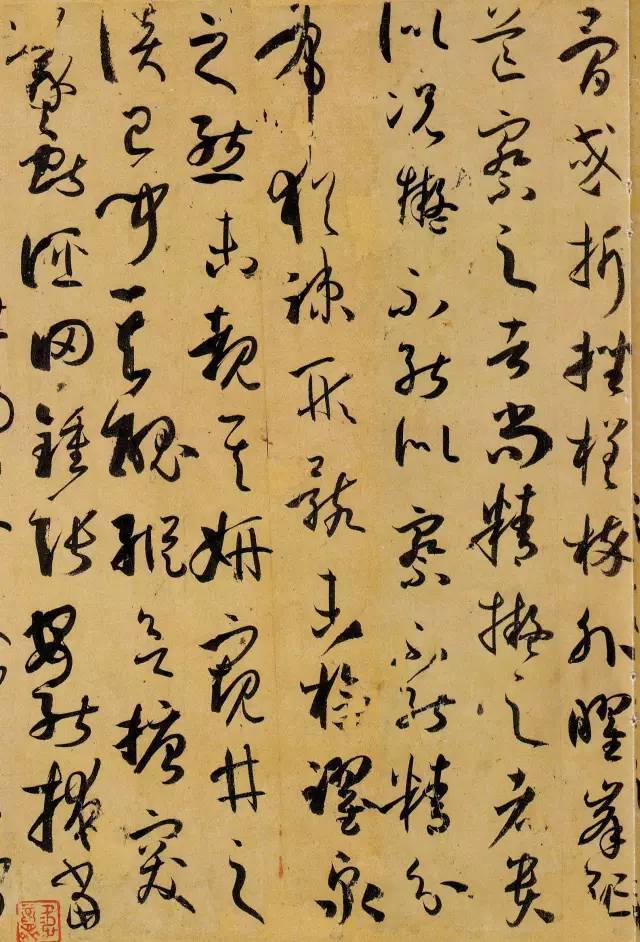 骨或折挫槎枿外曜鋒
芒察之者尚精擬之者貴
似況擬不能似察不能精分
布猶疎形骸未檢躍泉
之態未覩其妍窺井之
談已聞其醜縱欲搪突
羲獻誣罔鍾張安能掩當